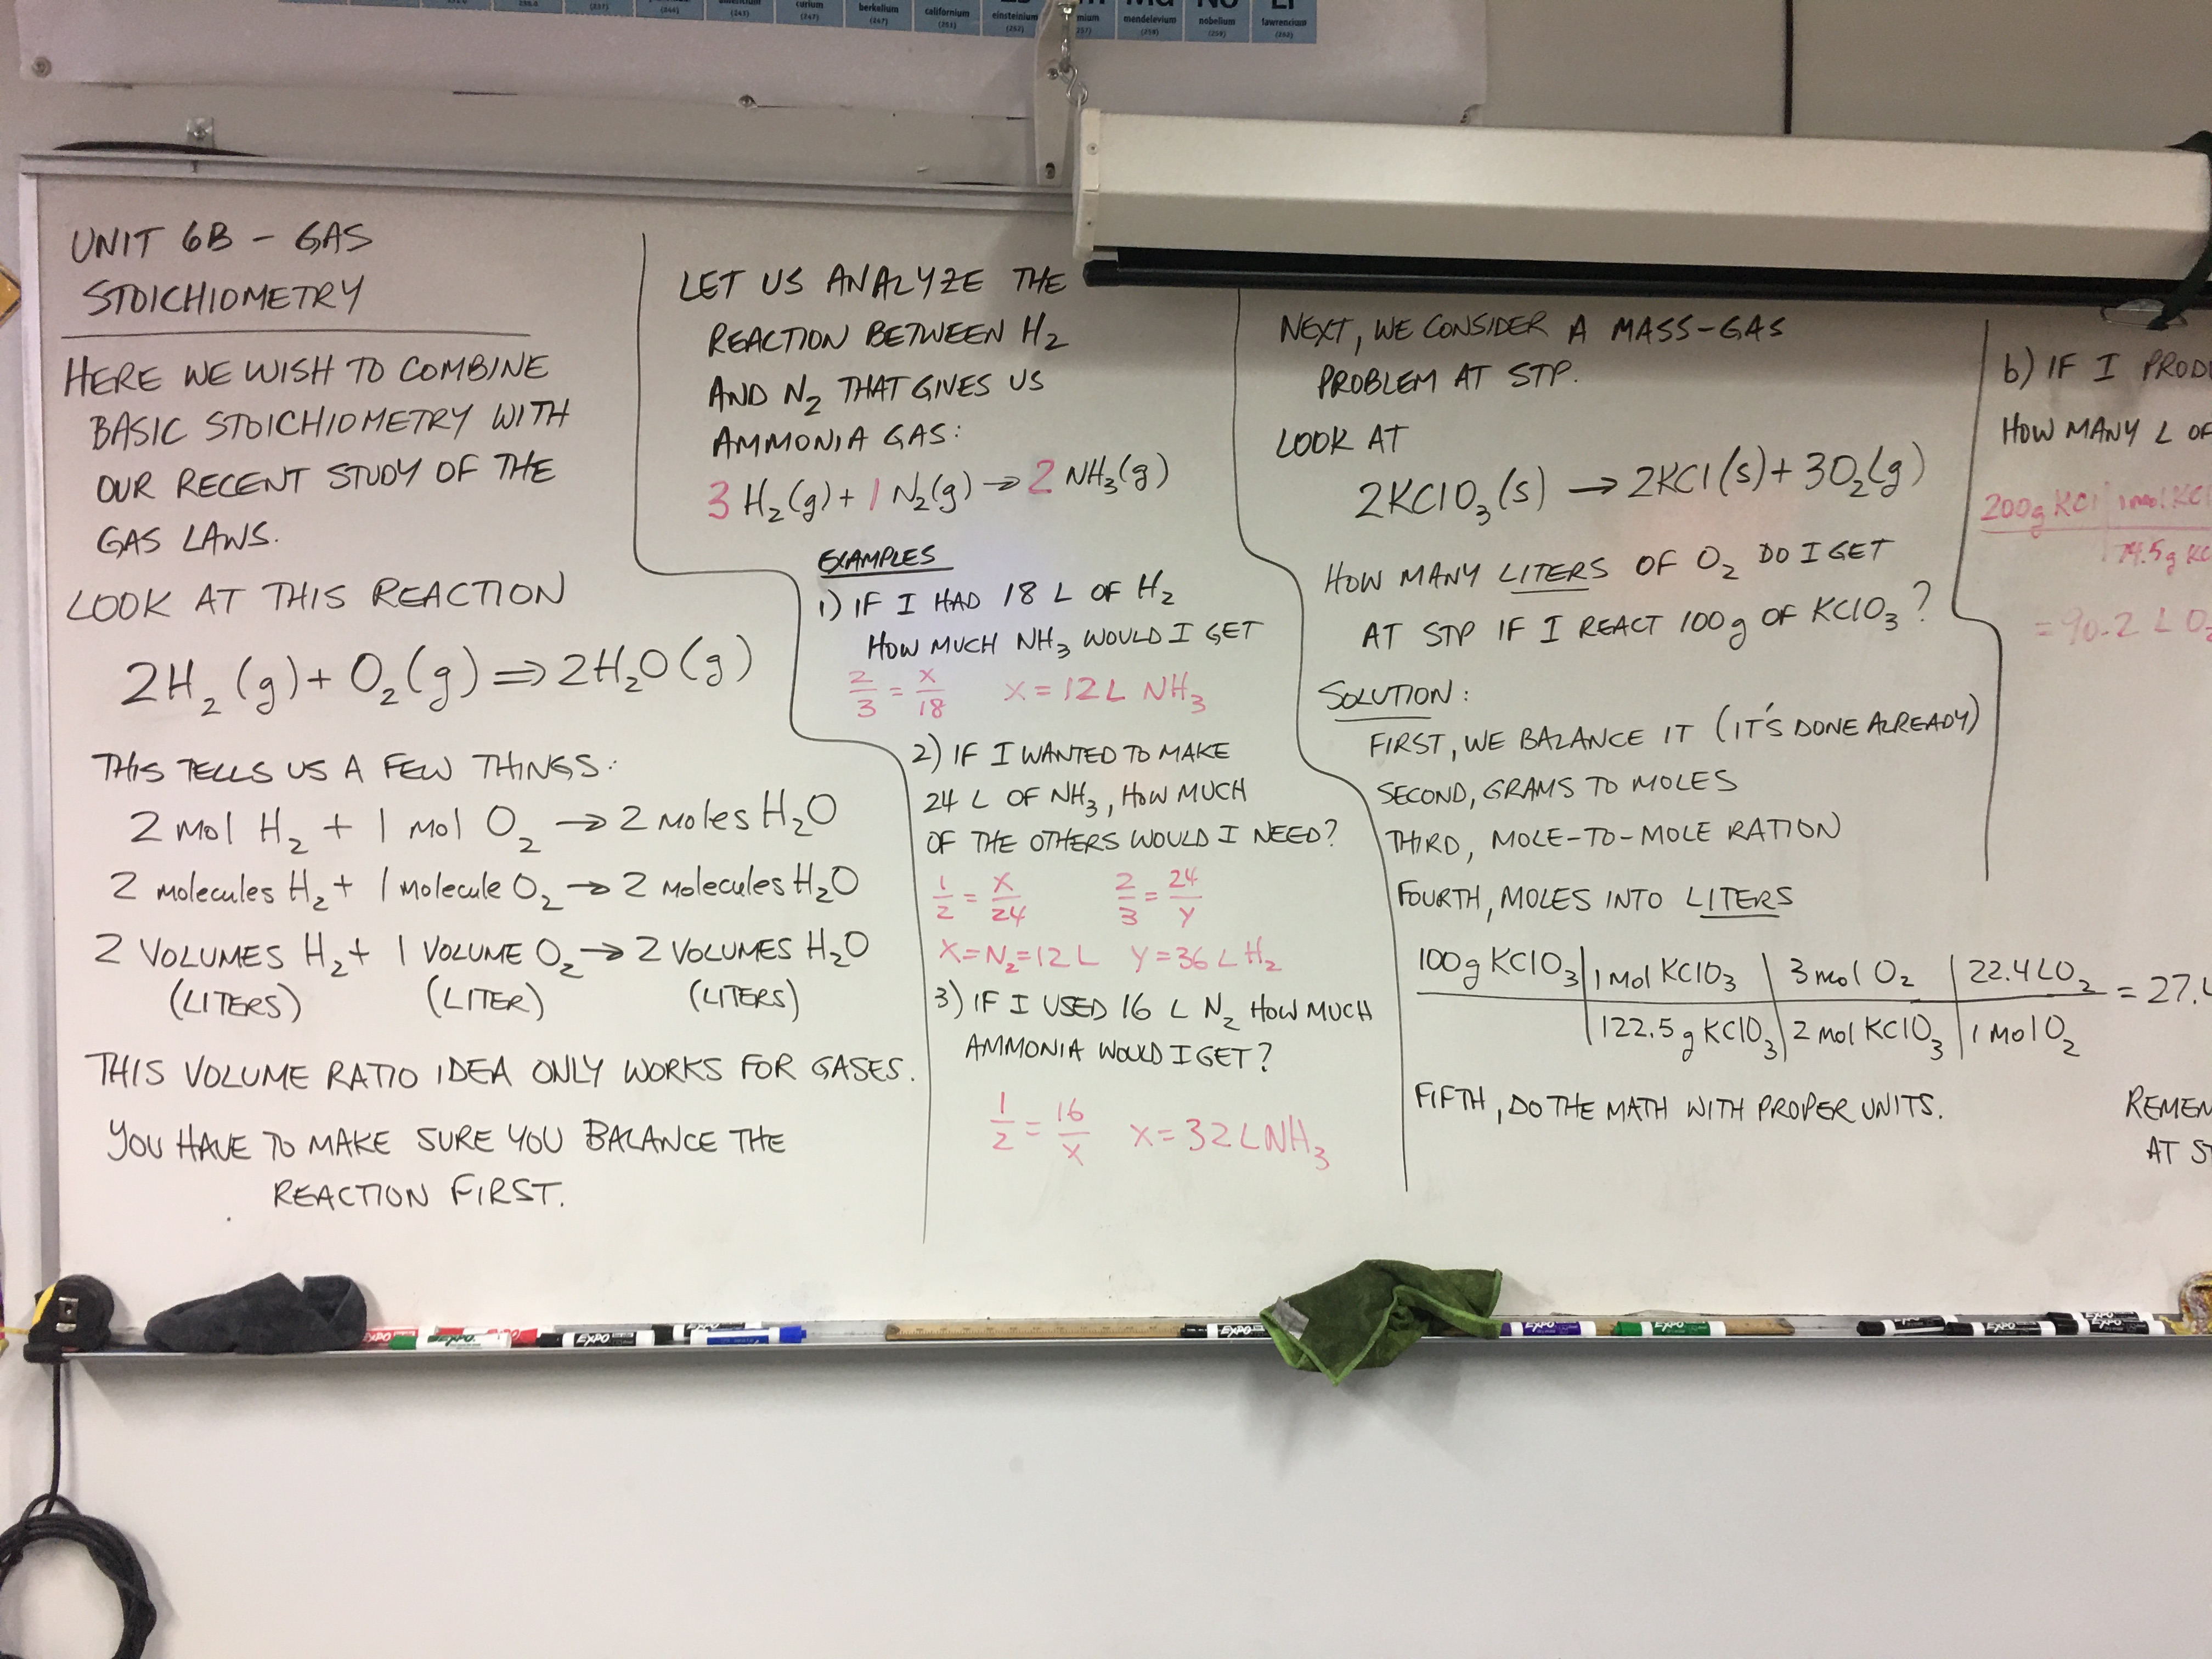 curium
(247)
berkelium
(247)
californium
(251)
einsteinium
(252)
mendelevium
(258)
nobelium
(259)
lawrencium
(262)
UNIT 6B - GAS
STOICHIOMETRY
HERE WE WISH TO COMBINE
BASIC STOICHIOMETRY WITH
OUR RECENT STUDY OF THE
GAS LAWS.
LOOK AT THIS REACTION
2H₂(g) + O₂(g) ⇒ 2H₂O(g)
THIS TELLS US A FEW THINGS:
2 mol H₂ + 1 mol O₂ → 2 moles H₂O
2 molecules H₂ + 1 molecule O₂ → 2 molecules H₂O
2 VOLUMES H₂ + 1 VOLUME O₂ → 2 VOLUMES H₂O
(LITERS) (LITER) (LITERS)
THIS VOLUME RATIO IDEA ONLY WORKS FOR GASES.
YOU HAVE TO MAKE SURE YOU BALANCE THE
REACTION FIRST.
LET US ANALYZE THE
REACTION BETWEEN H₂
AND N₂ THAT GIVES US
AMMONIA GAS:
3 H₂(g) + 1 N₂(g) → 2 NH₃(g)
EXAMPLES
1) IF I HAD 18 L OF H₂
HOW MUCH NH₃ WOULD I GET
2/3 = X/18 X = 12 L NH₃
2) IF I WANTED TO MAKE
24 L OF NH₃, HOW MUCH
OF THE OTHERS WOULD I NEED?
1/2 = X/24 2/3 = 24/Y
X = N₂ = 12 L Y = 36 L H₂
3) IF I USED 16 L N₂ HOW MUCH
AMMONIA WOULD I GET?
1/2 = 16/X X = 32 L NH₃
NEXT, WE CONSIDER A MASS-GAS
PROBLEM AT STP.
LOOK AT
2KClO₃(s) → 2KCl(s) + 3O₂(g)
HOW MANY LITERS OF O₂ DO I GET
AT STP IF I REACT 100g OF KClO₃?
SOLUTION:
FIRST, WE BALANCE IT (IT'S DONE ALREADY)
SECOND, GRAMS TO MOLES
THIRD, MOLE-TO-MOLE RATION
FOURTH, MOLES INTO LITERS
100g KClO₃ | 1 mol KClO₃ | 3 mol O₂ | 22.4 L O₂ = 27.4
122.5 g KClO₃ | 2 mol KClO₃ | 1 mol O₂
FIFTH, DO THE MATH WITH PROPER UNITS.
b) IF I
HOW MANY L OF
200g KCl | 1 mol
74.5g
= 90.2 L O₂
AT
EXPO
EXPO
EXPO
EXPO
EXPO
EXPO
EXPO
EXPO